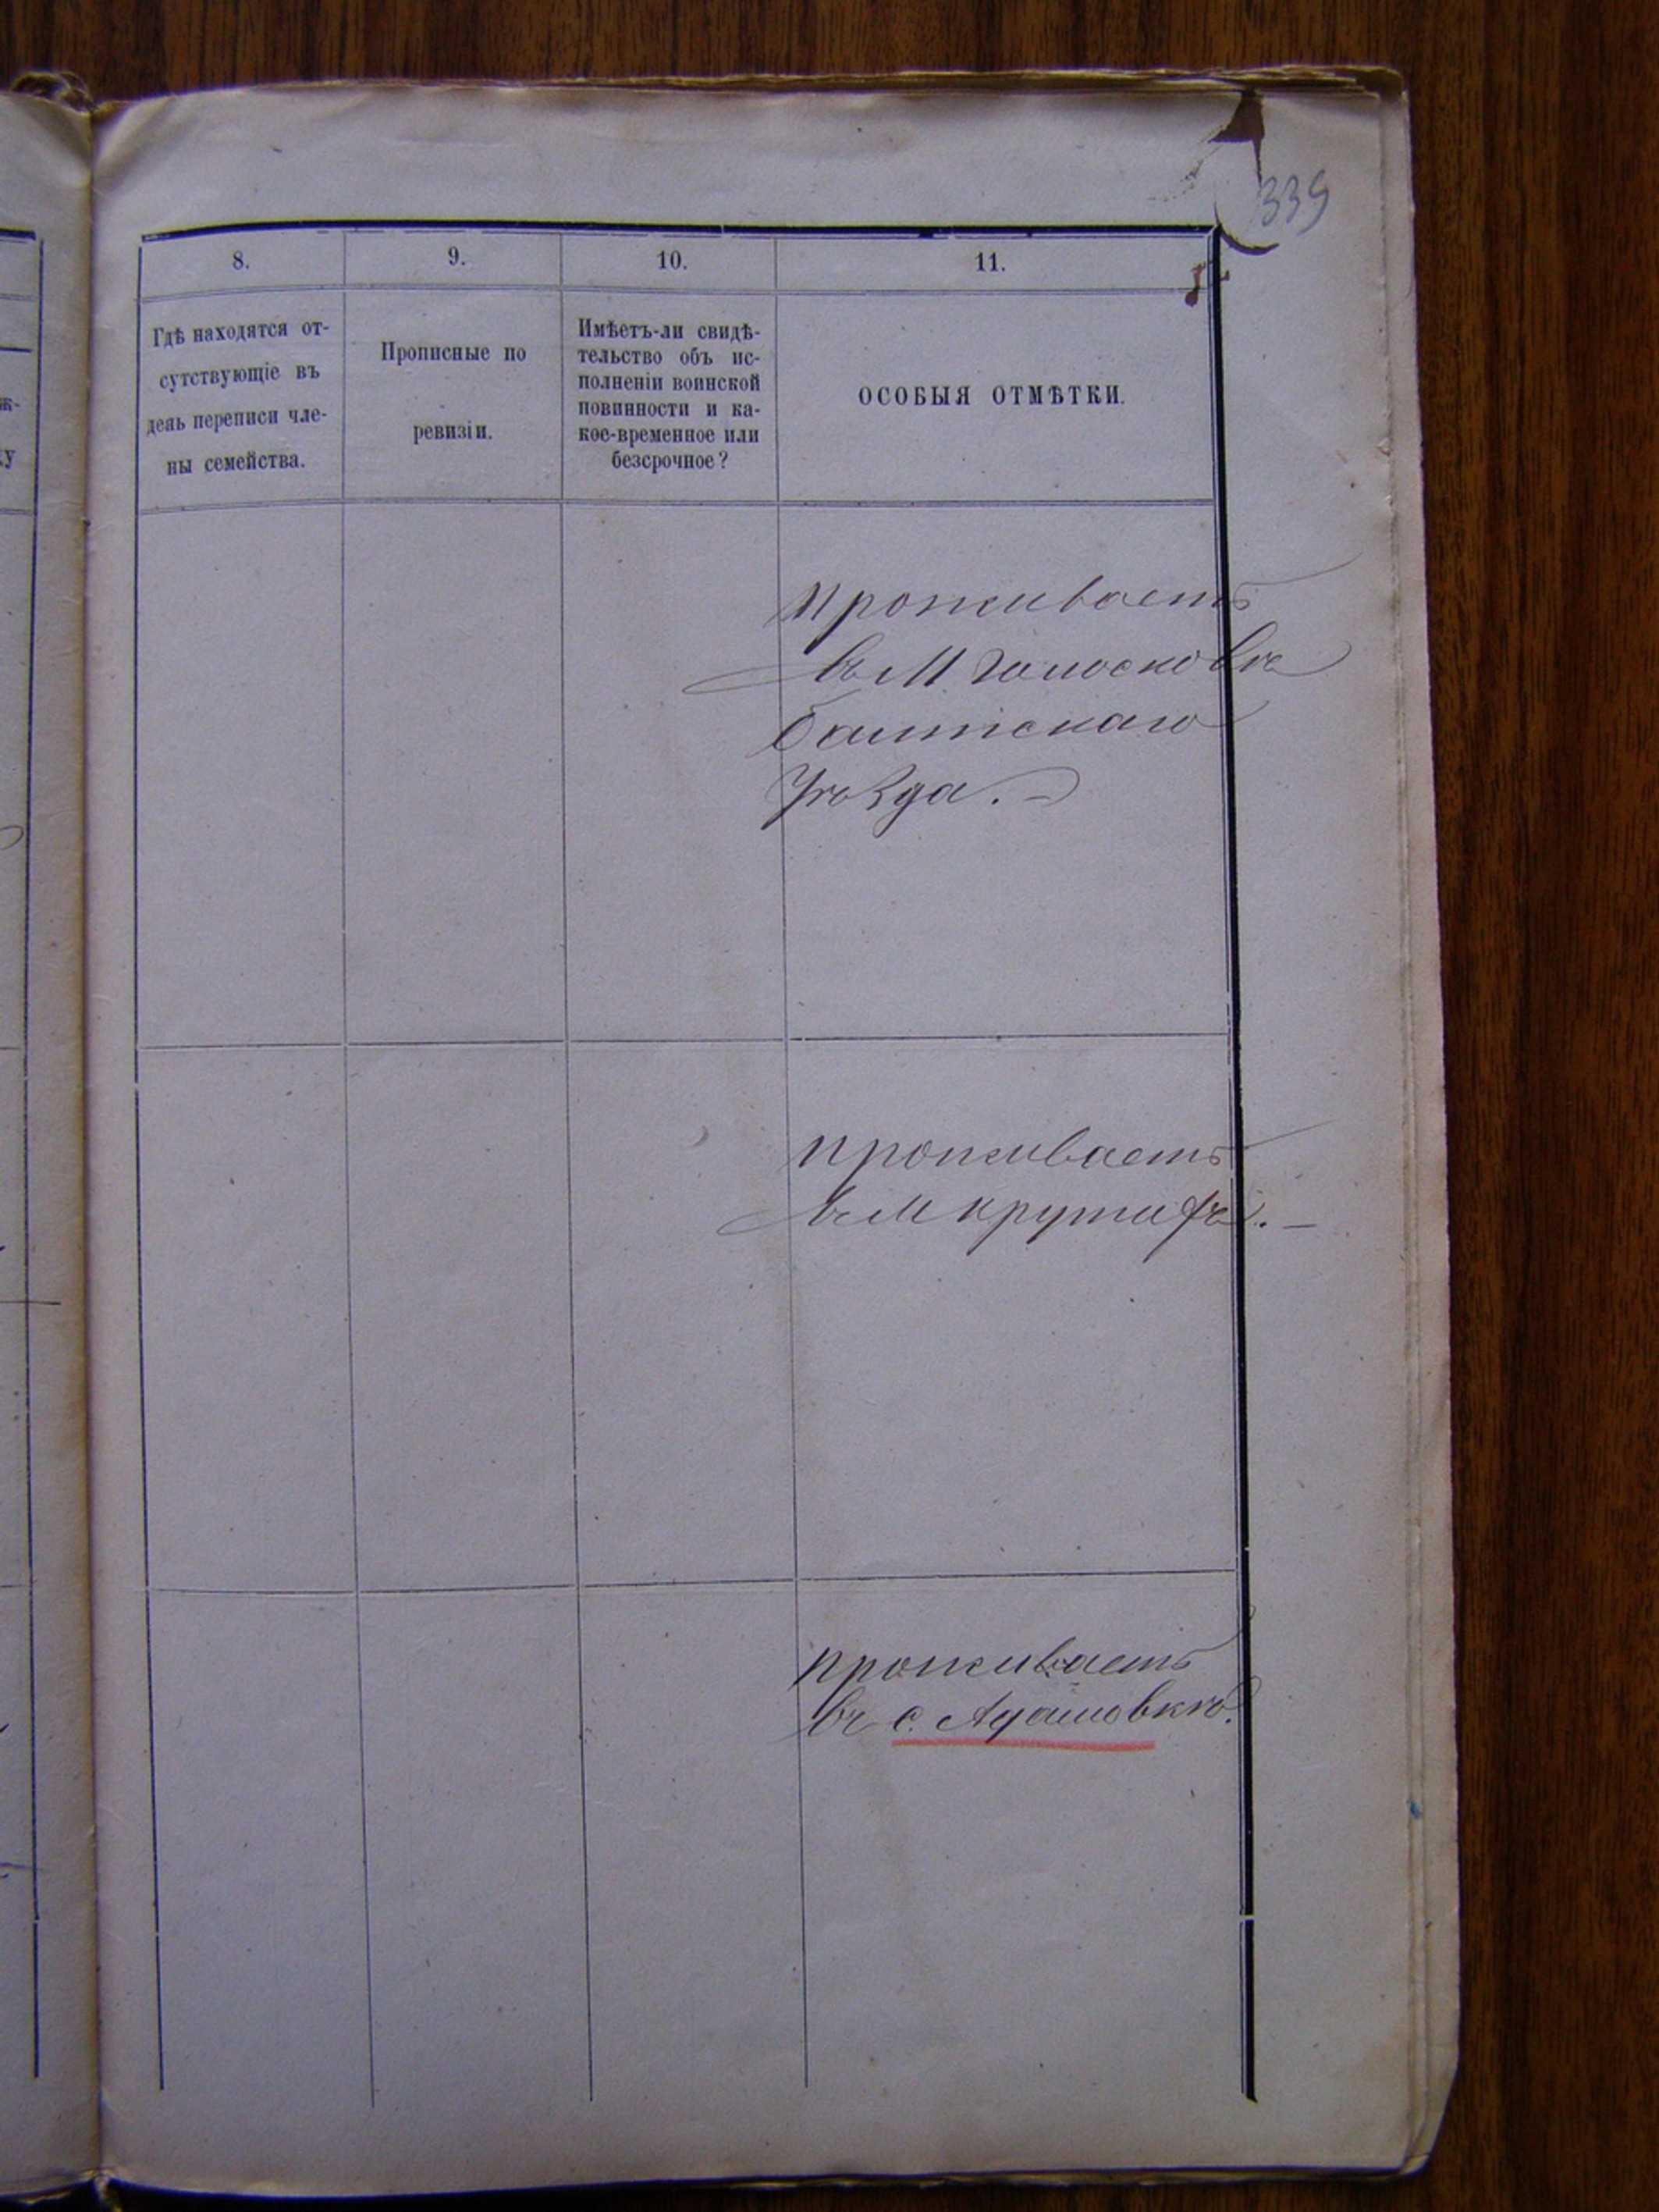 339
8.
9.
10.
11.
Гдѣ находятся от-
сутствующіе въ
день переписи чле-
ны семейства.
Прописные по
ревизіи.
Имѣетъ-ли свидѣ-
тельство объ ис-
полненіи воинской
повинности и ка-
кое-временное или
безсрочное?
ОСОБЫЯ ОТМѢТКИ.
проживаетъ
въ М. Голосковѣ
балтскаго
уѣзда. —
проживаетъ
въ М Крутыхъ. —
проживаетъ
въ с. Адамовкѣ.